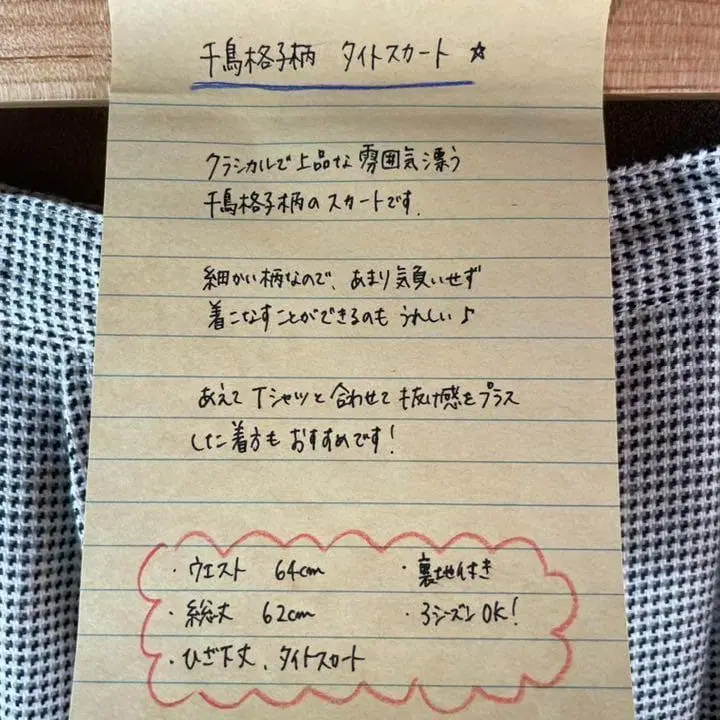 千鳥格子柄 タイトスカート ☆
クラシカルで上品な雰囲気漂う
千鳥格子柄のスカートです.
細かい柄なので、あまり気負いせず
着こなすことができるのも うれしい♪
あえて Tシャツと合わせて 抜け感をプラス
した着方も おすすめです!
・ウエスト 64cm ・裏地付き
・総丈 62cm ・3シーズンOK!
・ひざ下丈、タイトスカート